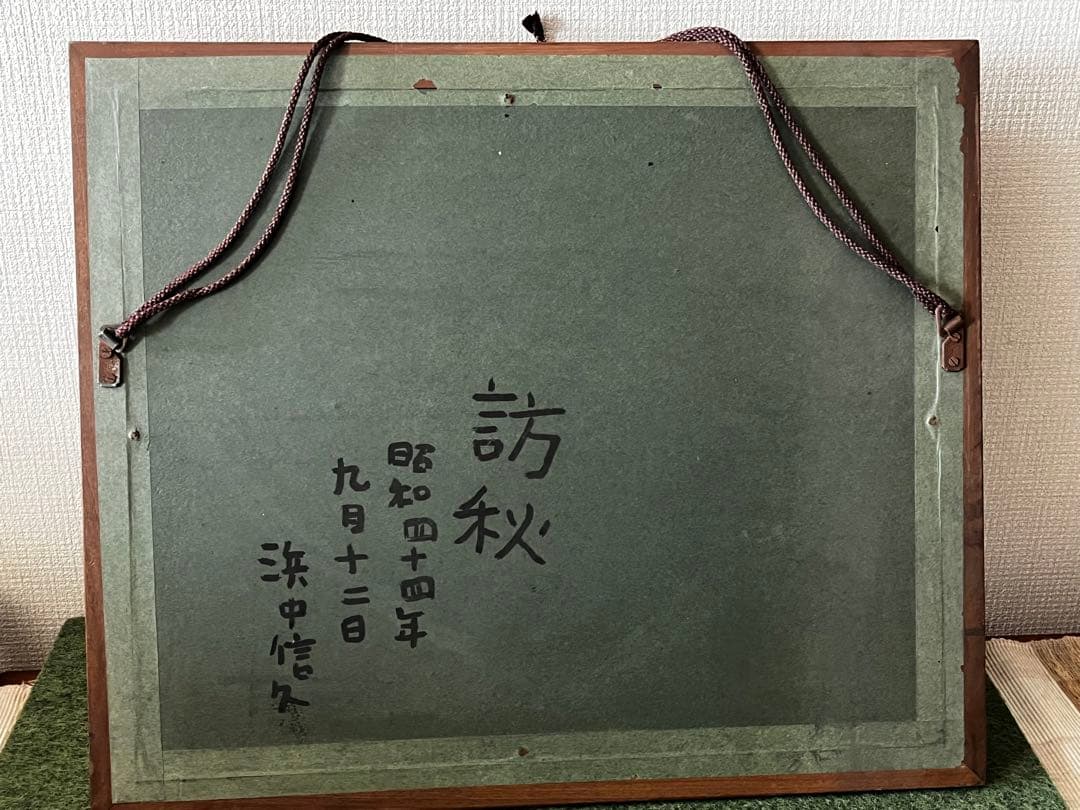 訪秋
昭和四十四年
九月十二日
浜中信久